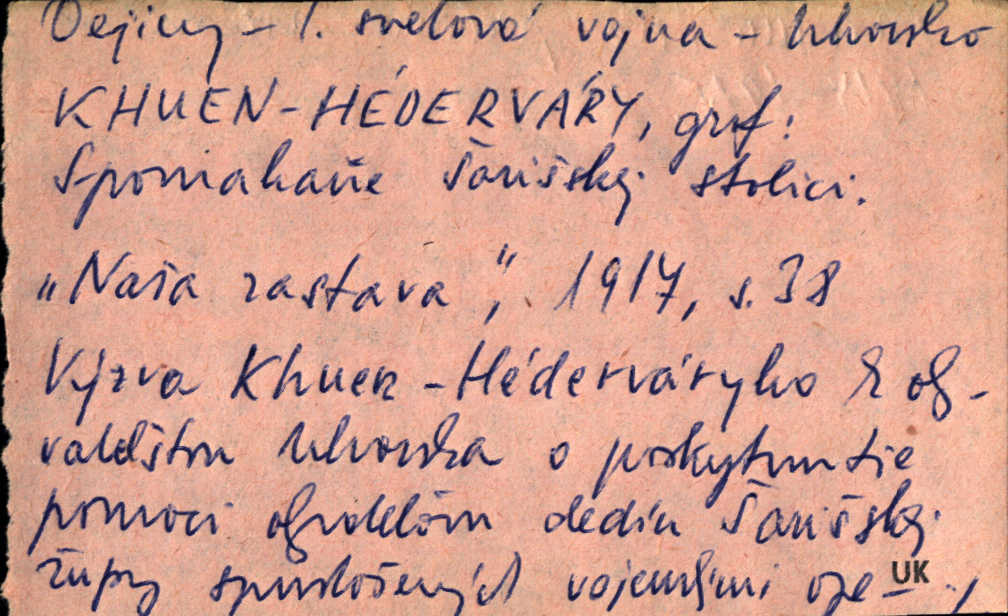 Dejiny - 1. svetová vojna - Uhorsko
KHUEN-HÉDERVÁRY, gróf:
Spomahaňe Šarišskej stolici.
„Naša zastava", 1917, s. 38
Výzva Khuen-Héderváryho k oby-
vateľstvu Uhorska o poskytnutie
pomoci obyvateľom dedín Šarišskej
župy spustošených vojenskými ope-
UK